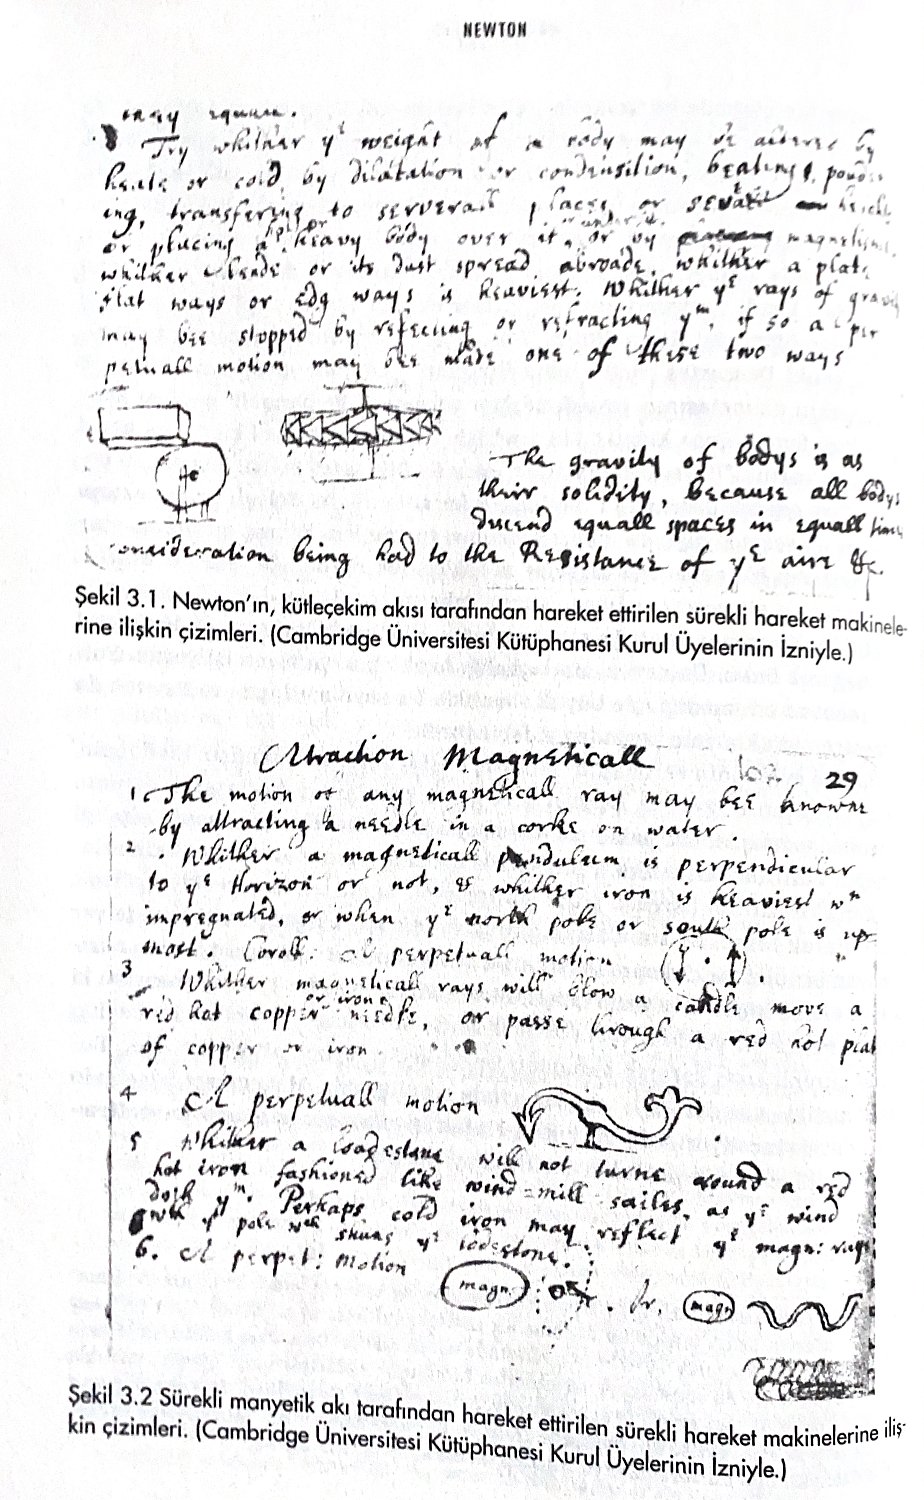 NEWTON
may equall.
Try whither yᵉ weight of a body may be altered by
heate or cold, by dilatation or condensition, beating, poud
ing, transfering to serverall places or severall heights
or placing a hot or heavy body over it or under it, or by magnetisme,
whither leade or its dust spread abroade, whither a plate
flat ways or edg ways is heaviest. Whither yᵉ rays of gravity
may bee stopped by reflecting or refracting yᵐ, if so a per
petuall motion may bee made one of these two ways
The gravity of bodys is as
their solidity, because all bodys
descend equall spaces in equall times
consideration being had to the Resistance of yᵉ aire &c.
Şekil 3.1. Newton'ın, kütleçekim akısı tarafından hareket ettirilen sürekli hareket makinele-
rine ilişkin çizimleri. (Cambridge Üniversitesi Kütüphanesi Kurul Üyelerinin İzniyle.)
Attraction Magneticall 102 29
1 The motion of any magneticall ray may bee knowne
by attracting a needle in a corke on water.
2 Whither a magneticall pendulum is perpendicular
to yᵉ Horizon or not, & whither iron is heaviest wⁿ
impregnated, or when yᵉ north pole or south pole is up
most. Coroll: A perpetuall motion
3 Whither magneticall rays will blow a candle move a
red hot copper or iron needle, or passe through a red hot plate
of copper or iron
4 A perpetuall motion
5 Whither a loadestone will not turne around a red
hot iron fashioned like wind-mill sailes, as yᵉ wind
doth yᵐ. Perhaps cold iron may reflect yᵉ magn: rays
wth yᵗ pole wch shuns yᵉ lodestone.
6. A perpet: motion
magn. Or magn
Şekil 3.2 Sürekli manyetik akı tarafından hareket ettirilen sürekli hareket makinelerine iliş-
kin çizimleri. (Cambridge Üniversitesi Kütüphanesi Kurul Üyelerinin İzniyle.)